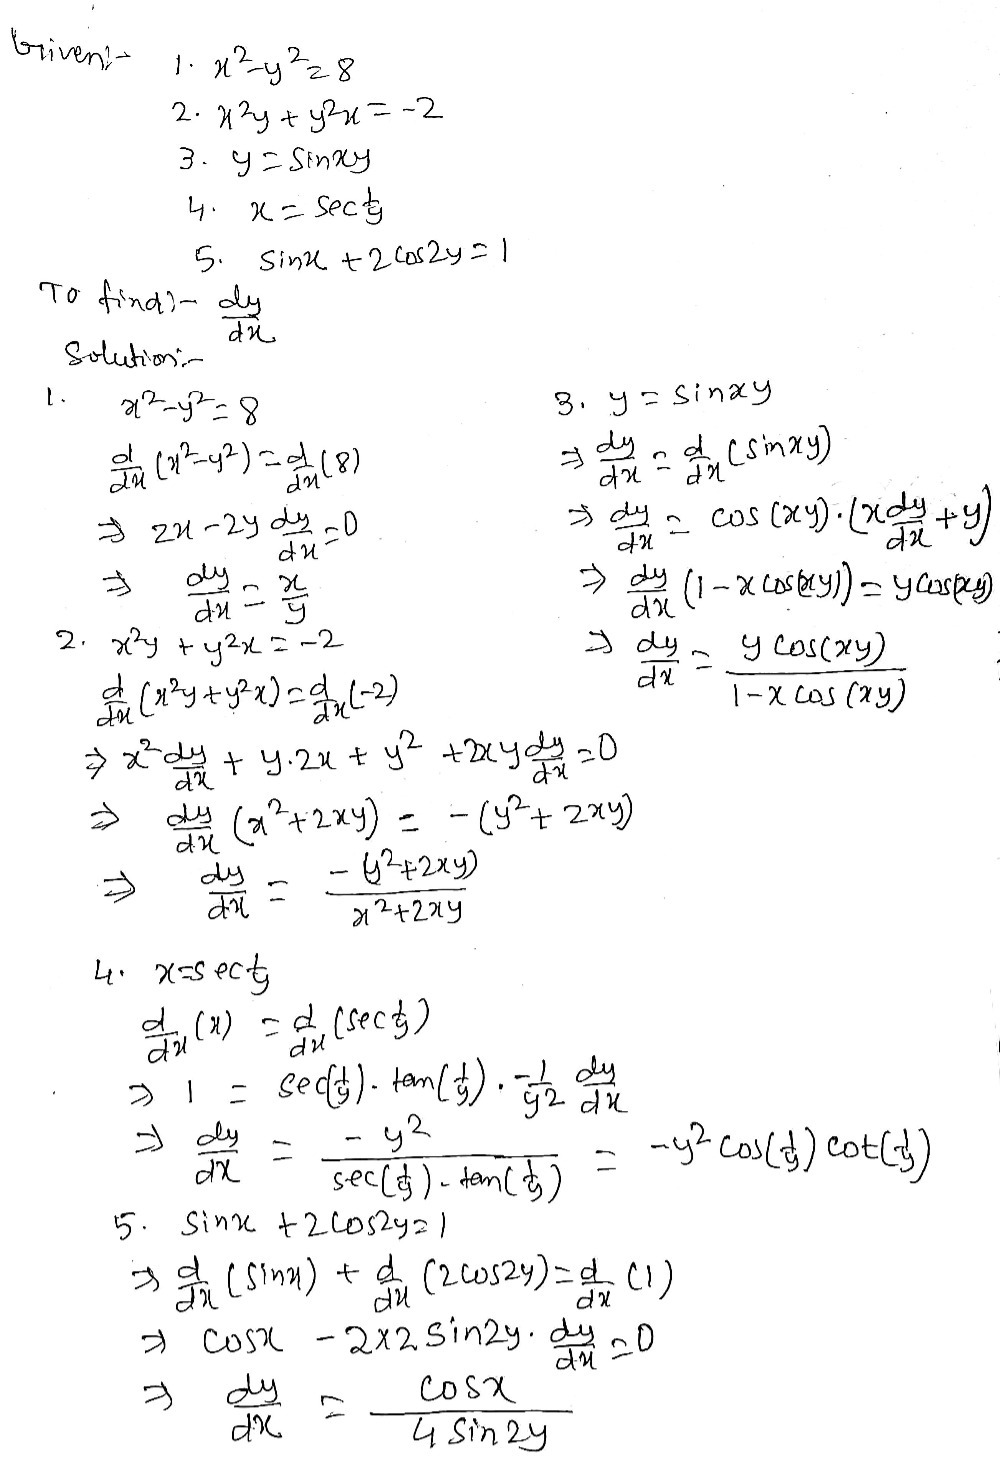 Given:- 1. x²-y²=8
2. x²y + y²x = -2
3. y = sinxy
4. x = sec 1/y
5. sinx + 2cos2y = 1
To find:- dy/dx
Solution:-
1. x²-y²=8
d/dx (x²-y²) = d/dx (8)
⇒ 2x - 2y dy/dx = 0
⇒ dy/dx = x/y
2. x²y + y²x = -2
d/dx (x²y + y²x) = d/dx (-2)
⇒ x² dy/dx + y.2x + y² + 2xy dy/dx = 0
⇒ dy/dx (x²+2xy) = -(y²+2xy)
⇒ dy/dx = -(y²+2xy)/x²+2xy
3. y = sinxy
⇒ dy/dx = d/dx (sinxy)
⇒ dy/dx = cos(xy).(x dy/dx + y)
⇒ dy/dx (1-x cos(xy)) = y cos(xy)
⇒ dy/dx = y cos(xy)/1-x cos(xy)
4. x=sec 1/y
d/dx (x) = d/dx (sec 1/y)
⇒ 1 = sec(1/y). tan(1/y). -1/y² dy/dx
⇒ dy/dx = -y²/sec(1/y).tan(1/y) = -y² cos(1/y) cot(1/y)
5. sinx + 2cos2y=1
⇒ d/dx (sinx) + d/dx (2cos2y) = d/dx (1)
⇒ cosx - 2x2 sin2y. dy/dx = 0
⇒ dy/dx = cosx/4 sin2y